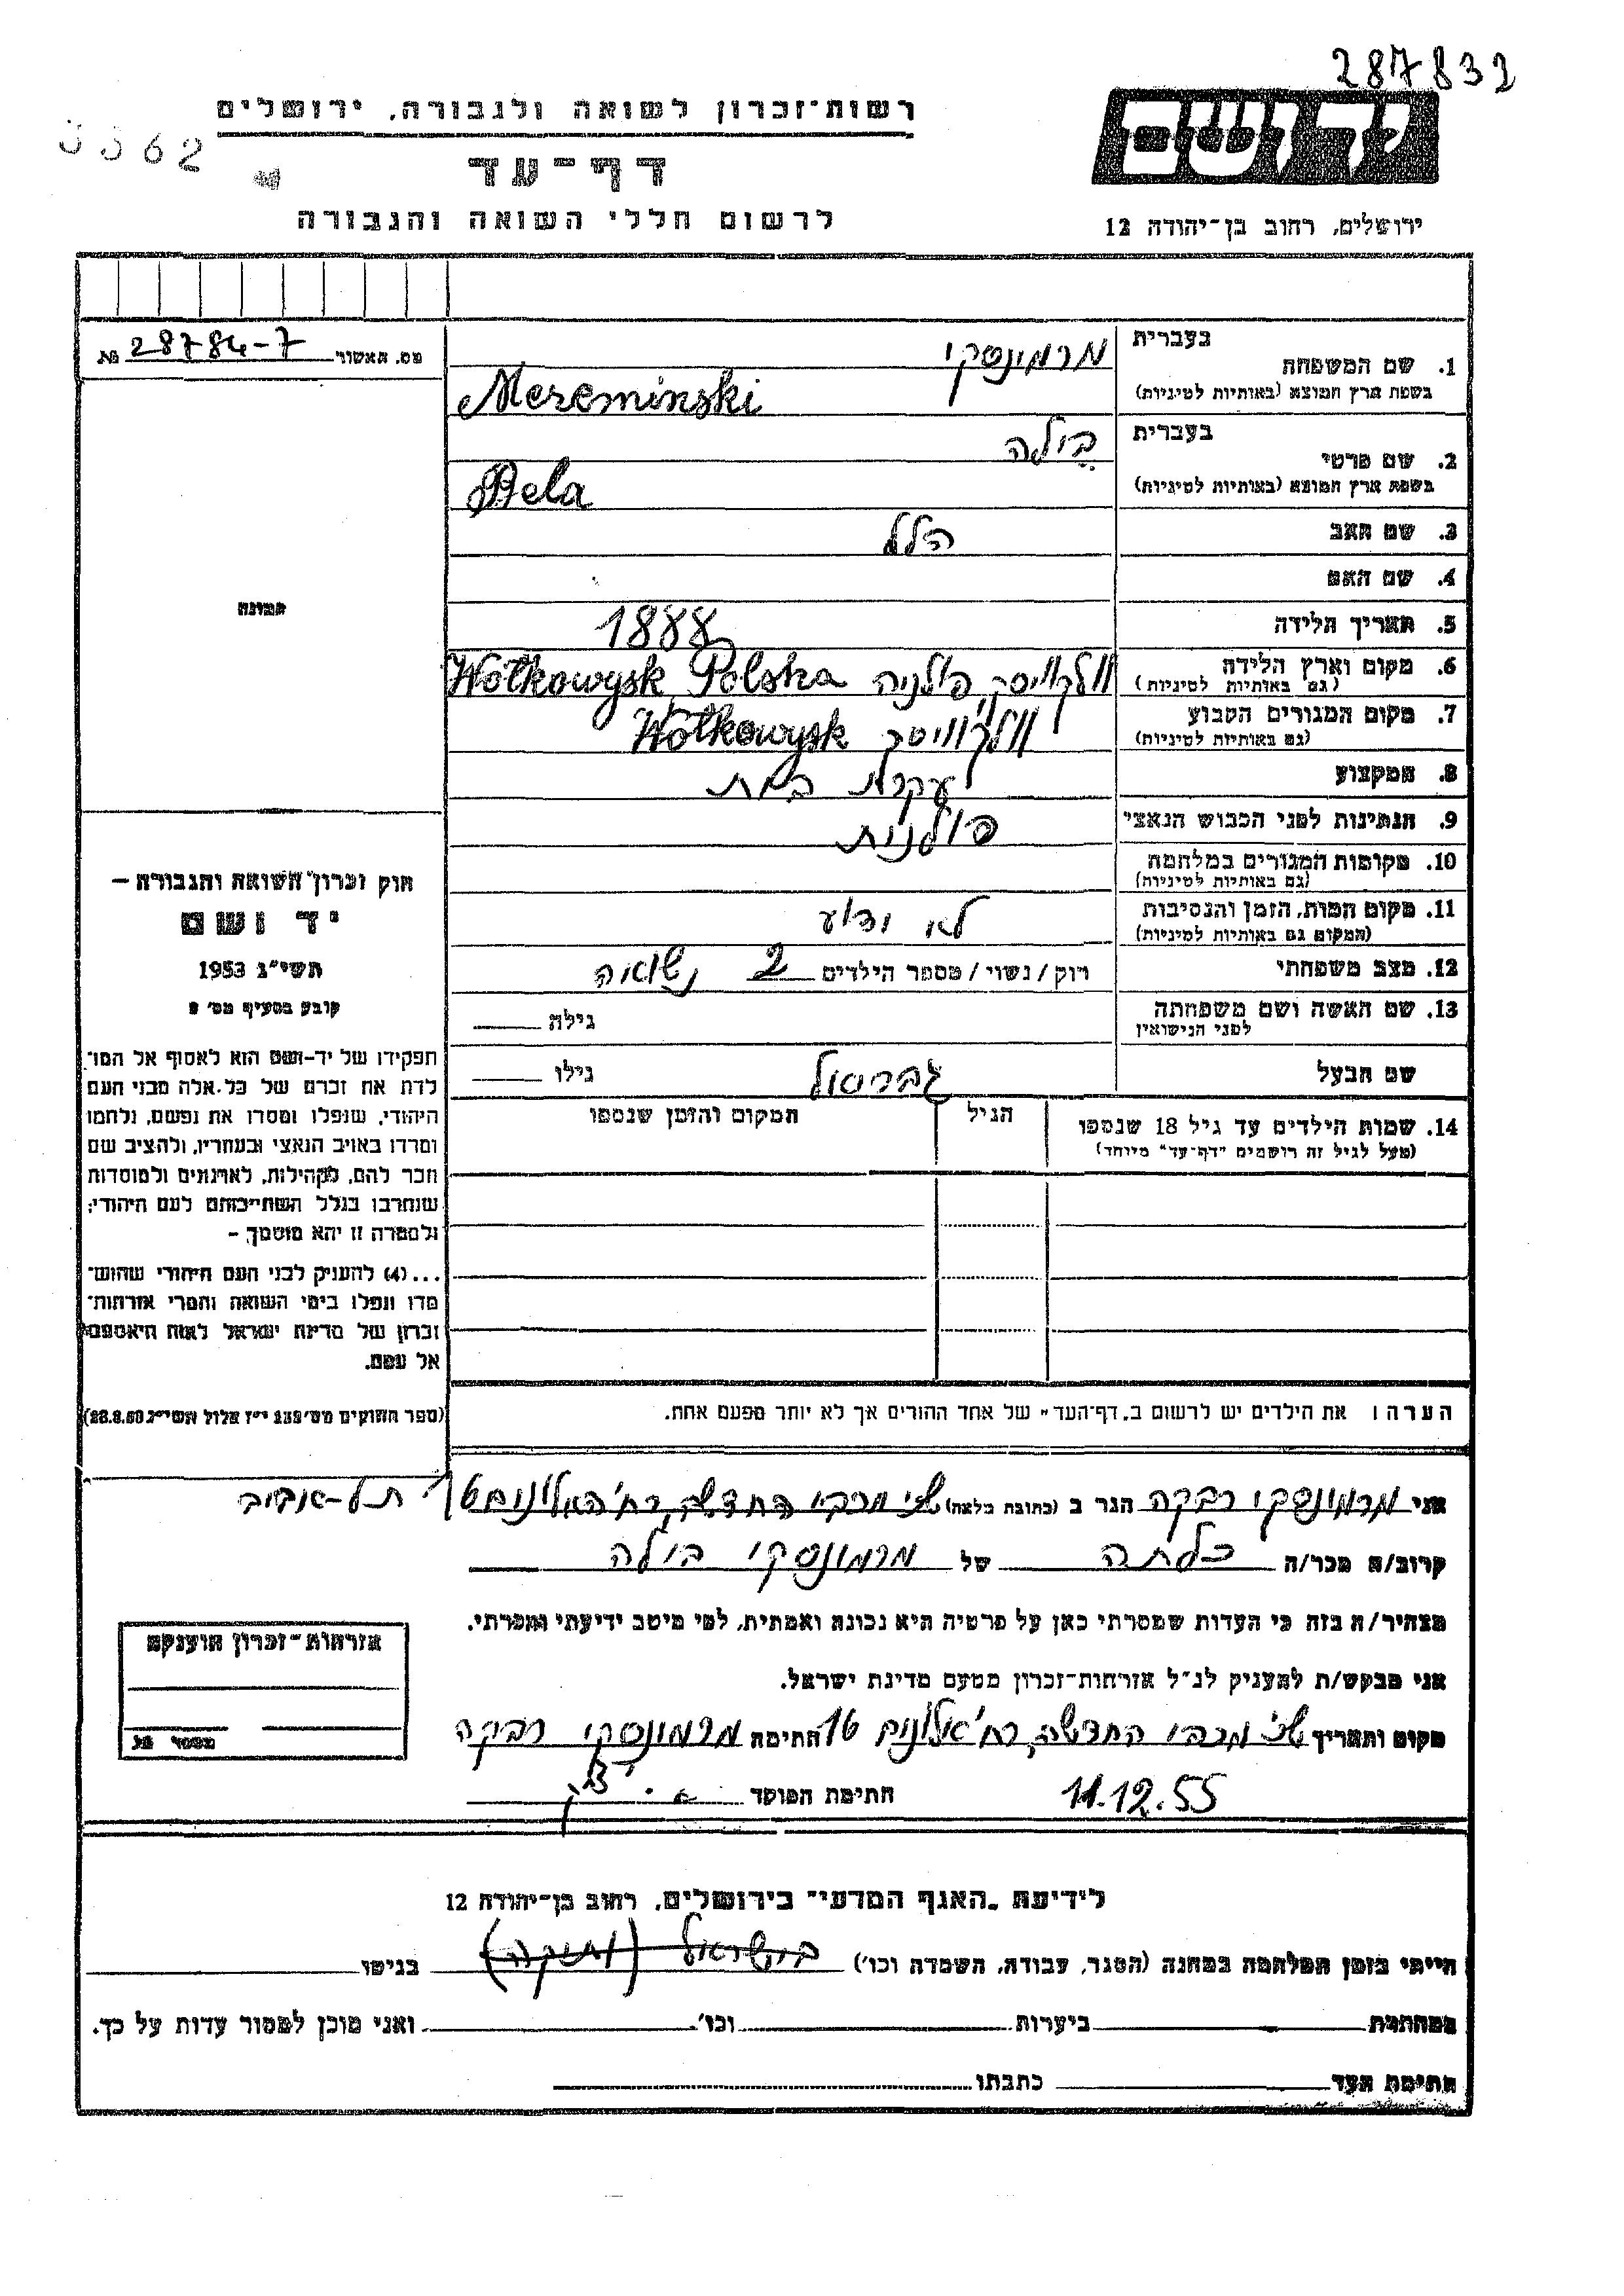 287832
רשות־זכרון לשואה ולגבורה, ירושלים
יד ושם
דף־עד
לרשום חללי השואה והגבורה
ירושלים, רחוב בן־יהודה 12
מס. האשור 28784-7 №
בעברית מרמינסקי
1. שם המשפחה
בשפת ארץ המוצא (באותיות לטיניות) Mereminski
בעברית בילה
2. שם פרטי
בשפת ארץ המוצא (באותיות לטיניות) Bela
3. שם האב הלל
4. שם האם
5. תאריך הלידה 1888
6. מקום וארץ הלידה וולקוויסק פולניה Wołkowysk Polska
(גם באותיות לטיניות)
7. מקום המגורים הקבוע וולקוויסק Wołkowysk
(גם באותיות לטיניות)
8. המקצוע עקרת בית
9. הנתינות לפני הכבוש הנאצי פולנית
10. מקומות המגורים במלחמה
(גם באותיות לטיניות)
11. מקום המות, הזמן והנסיבות לא ידוע
(המקום גם באותיות לטיניות)
12. מצב משפחתי רוק/נשוי/מספר הילדים 2 נשואה
13. שם האשה ושם משפחתה גילה
לפני הנישואין
שם הבעל גבריאל גילו
14. שמות הילדים עד גיל 18 שנספו הגיל המקום והזמן שנספו
(מעל לגיל זה רושמים "דף־עד" מיוחד)
תמונה
חוק זכרון השואה והגבורה —
יד ושם
תשי"ג 1953
קובע בסעיף מס'
תפקידו של יד-ושם הוא לאסוף אל המו־
לדת את זכרם של כל אלה מבני העם
היהודי, שנפלו ומסרו את נפשם, נלחמו
ומרדו באויב הנאצי ובעוזריו, ולהציב שם
וזכר להם, לקהילות, לארגונים ולמוסדות
שנחרבו בגלל השתייכותם לעם היהודי;
ולמטרה זו יהא מוסמך, —
...(4) להעניק לבני העם היהודי שהוש־
מדו ונפלו בימי השואה והמרי אזרחות־
זכרון של מדינת ישראל לאות היאספם
אל עמם.
הערה: את הילדים יש לרשום ב"דף־העד" של אחד ההורים אך לא יותר מפעם אחת.
אני מרמינסקי רבקה הגר ב (כתובת מלאה) שכ' מכבי החדשה, רח' האלונים 16 תל-אביב
קרוב/ה מכר/ה כלתה של מרמינסקי בילה
מצהיר/ה בזה כי העדות שמסרתי כאן על פרטיה היא נכונה ואמתית, לפי מיטב ידיעתי והכרתי.
אני מבקש/ת להעניק לנ"ל אזרחות־זכרון מטעם מדינת ישראל.
מקום ותאריך שכ' מכבי החדשה, רח' אלונים 16 חתימה מרמינסקי רבקה
11.12.55 חתימת הפוקד
אזרחות־זכרון הוענקה
מספר
לידיעת "האגף המדעי" בירושלים, רחוב בן־יהודה 12
הייתי בזמן המלחמה במחנה (הסגר, עבודה, השמדה וכו') בישראל (ותיקה) בגיטו
במחתרת ביערות וכו' ואני מוכן למסור עדות על כך.
חתימת העד כתבתו